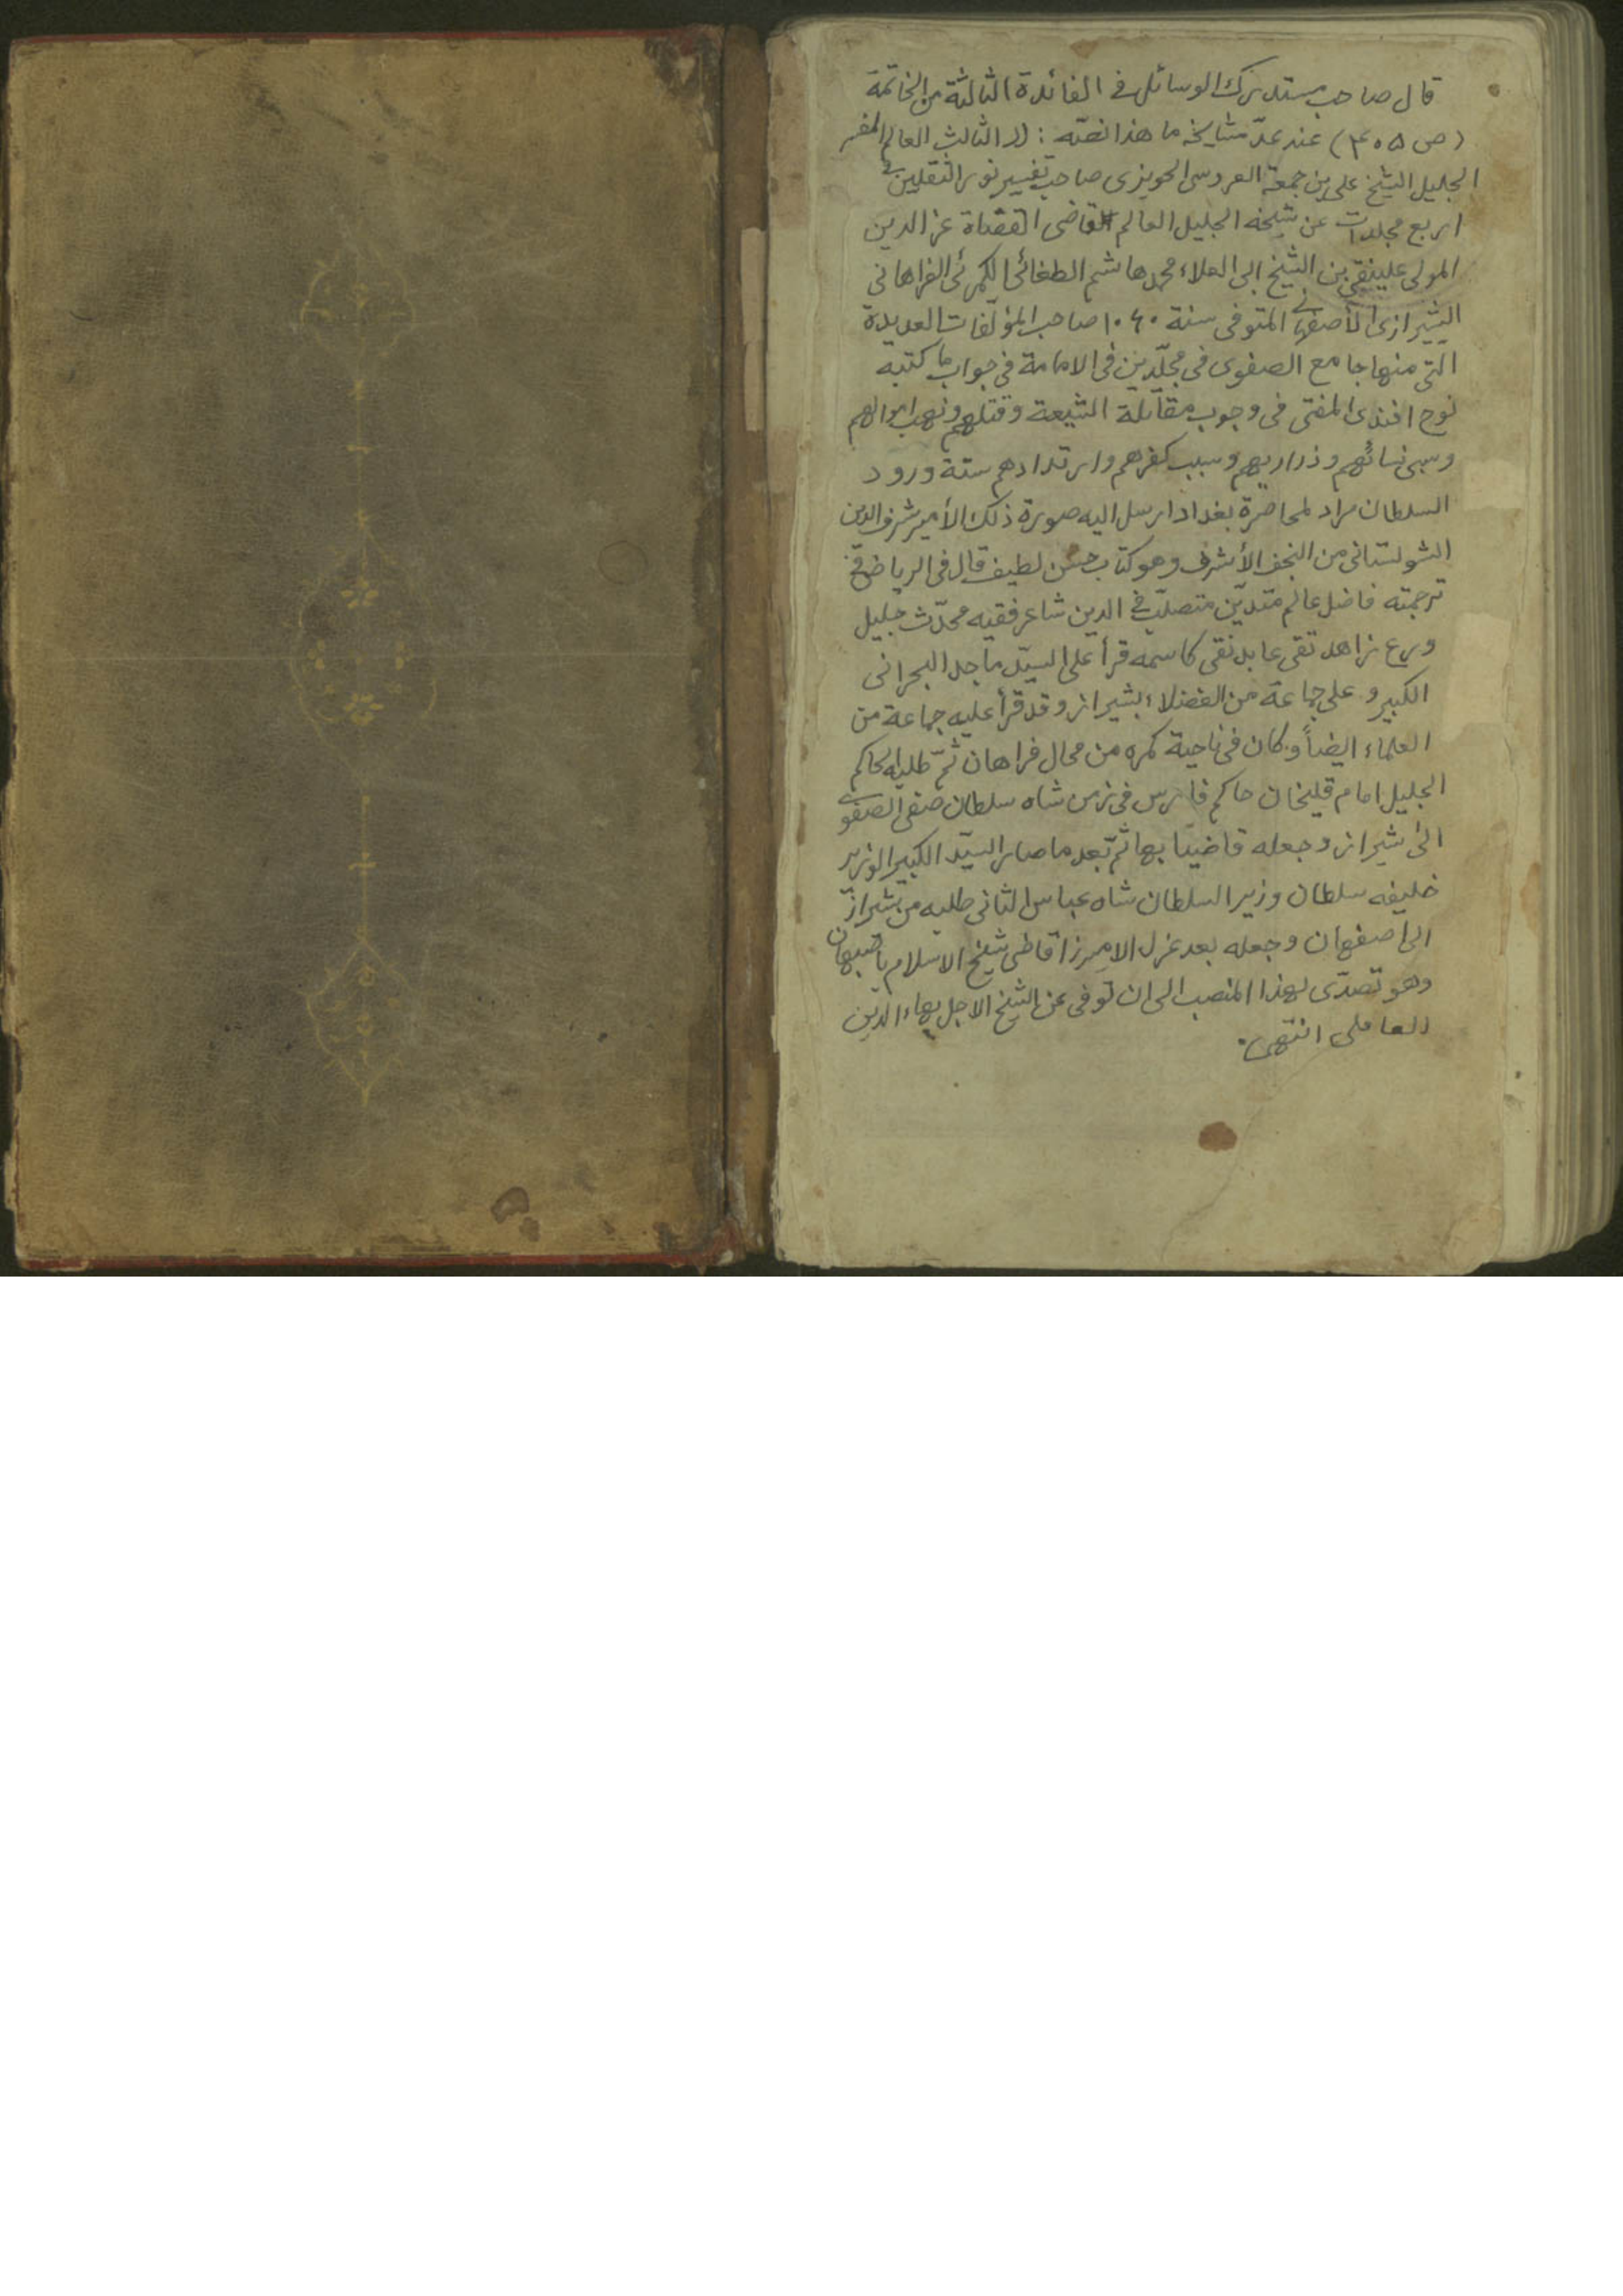 قال صاحب مستدرك الوسائل في الفائدة الثالثة من الخاتمة
(ص ۴۰۵) عند عدّ مشايخه ما هذا نصّه : الثالث العالم المفسر
الجليل الشيخ علي بن جمعة العروسى الحويزى صاحب تفسير نور الثقلين في
اربع مجلدات عن شيخه الجليل العالم القاضى القضاة عز الدين
المولى علينقى بن الشيخ ابى العلاء محمد هاشم الطغائى الكمرئى الفراهانى
الشيرازى الأصفهانى المتوفى سنة ۱۰۶۰ صاحب المؤلّفات العديدة
التى منها جامع الصفوى فى مجلّدين فى الامامة فى جواب ما كتبه
نوح افندى المفتى فى وجوب مقاتلة الشيعة وقتلهم ونهب اموالهم
وسبى نسائهم وذراريهم وسبب كفرهم وارتدادهم سنة ورود
السلطان مراد لمحاصرة بغداد ارسل اليه صورة ذلك الأمير شرف الدين
الشولستانى من النجف الأشرف وهو كتاب حسن لطيف قال فى الرياض في
ترجمته فاضل عالم متديّن متصلّب في الدين شاعر فقيه محدّث جليل
ورع زاهد تقى عابد نقى كاسمه قرأ على السيّد ماجد البحرانى
الكبير و على جماعة من الفضلاء بشيراز و قد قرأ عليه جماعة من
العلماء ايضاً و كان فى ناحية كمره من محال فراهان ثمّ طلبه الحاكم
الجليل امام قليخان حاكم فارس فى زمن شاه سلطان صفى الصفوي
الى شيراز و جعله قاضياً بها ثمّ بعد ما صار السيّد الكبير الوزير
خليفه سلطان وزير السلطان شاه عباس الثانى طلبه من شيراز
الى اصفهان و جعله بعد عزل الاميرزا قاضى شيخ الاسلام باصبهان
وهو تصدّى لهذا المنصب الى ان توفى عن الشيخ الاجل بهاء الدين
العاملى انتهى.